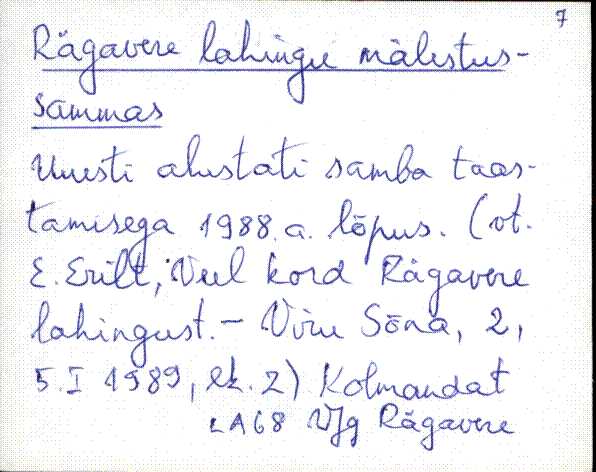 7
Rägavere lahingu mälestus-
sammas
Uuesti alustati samba taas-
tamisega 1988.a. lõpus. (vt.
E. Erilt, Veel kord Rägavere
lahingust. - Viru Sõna, 2,
5.I 1989, lk. 2) Kolmandat
LA68 VJg Rägavere